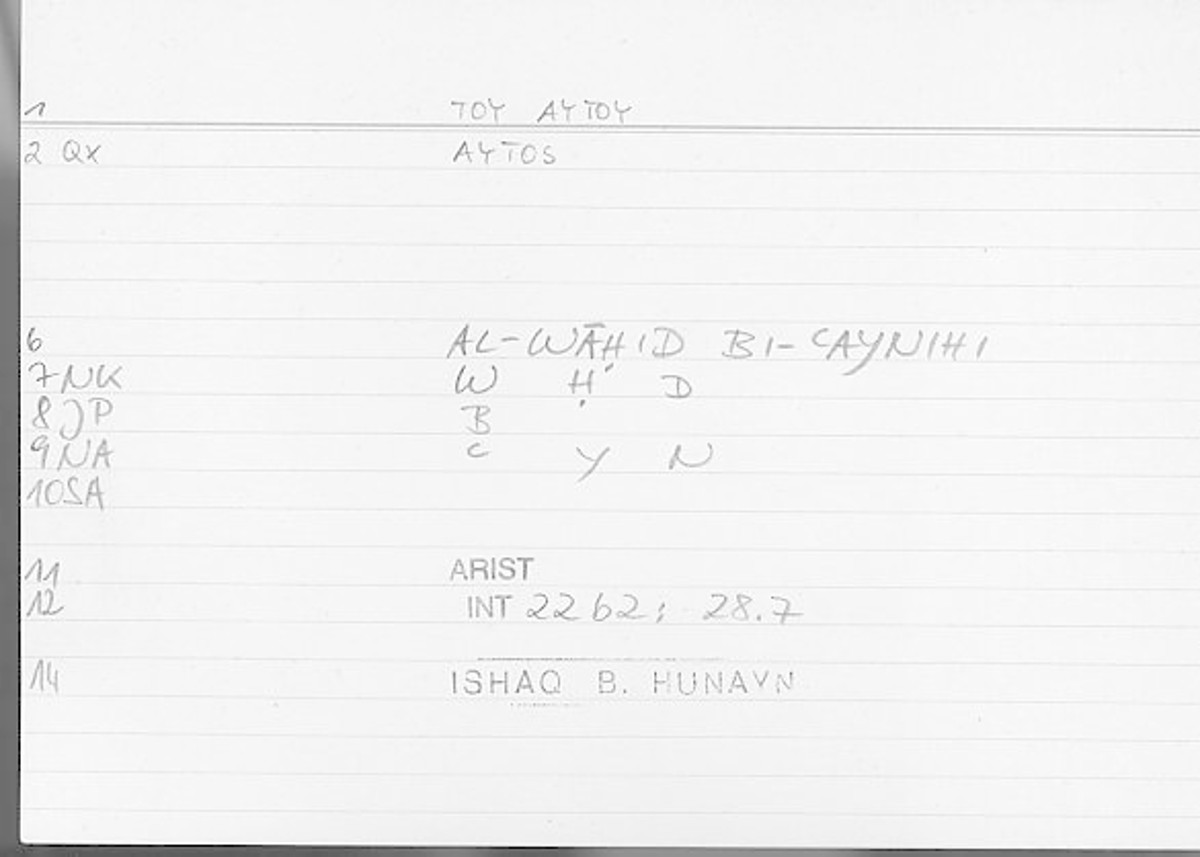 1 TOY AYTOY
2 QX AYTOS
6 AL-WĀḤID BI-ʿAYNIHI
7 NK W Ḥ D
8 JP B
9 NA ʿ Y N
10 SA
11 ARIST
12 INT 22 62; 28.7
14 ISHAQ B. HUNAYN